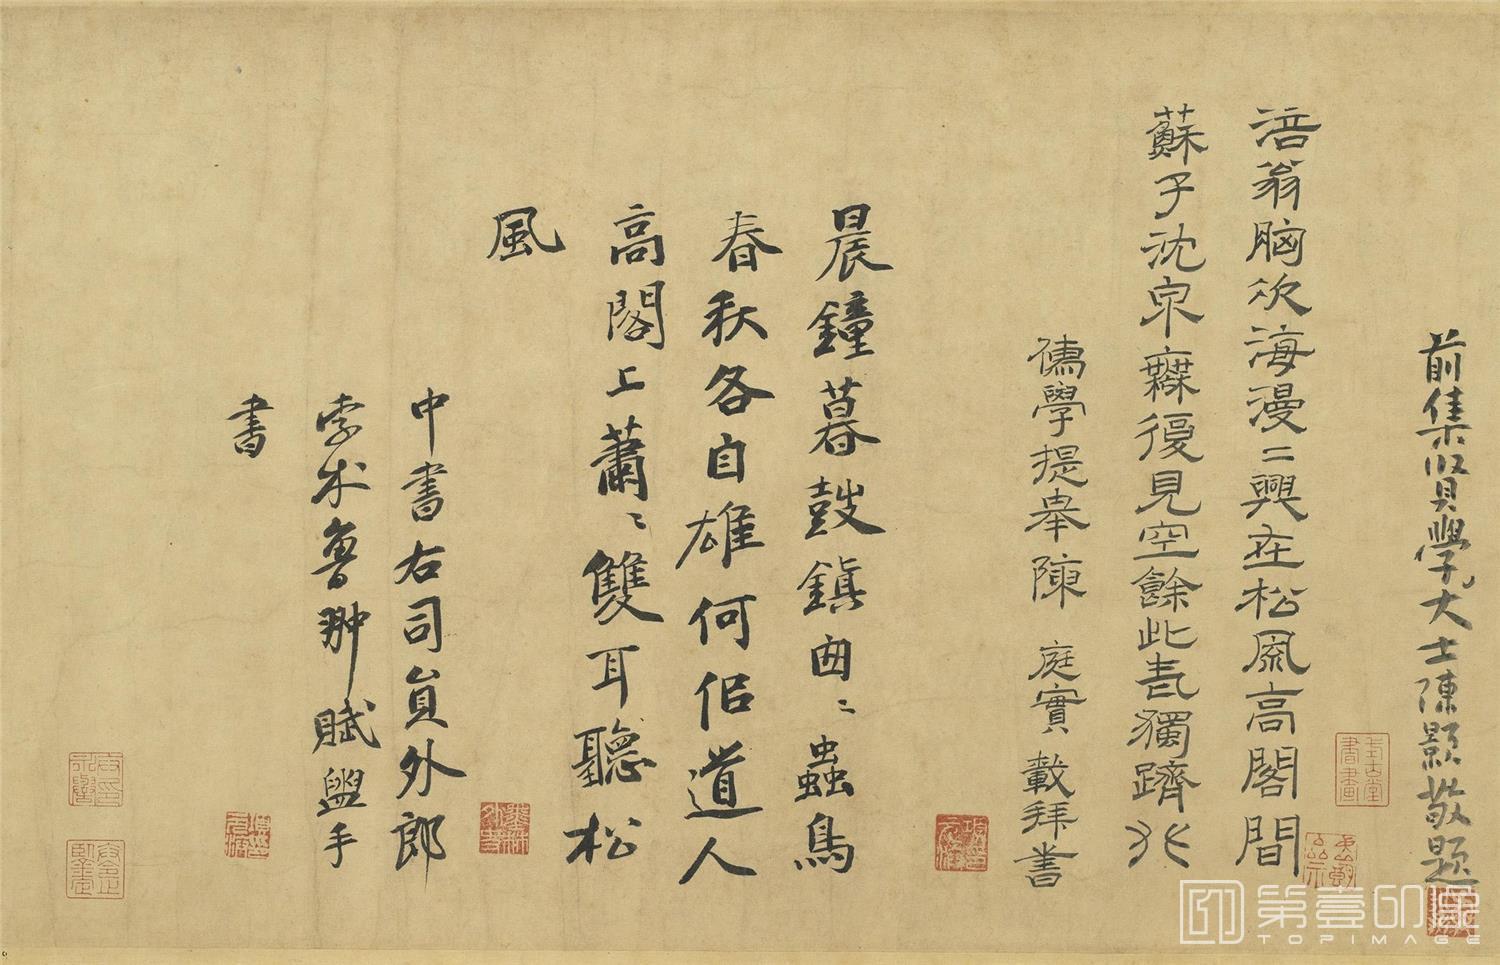 前集賢學士陳顥敬題
涪翁胸次海漫〻興在松風高閣間
蘇子沈泉無復見空餘此老獨躋
儒學提舉陳庭實載拜書
晨鐘暮鼓鎮囱〻蟲鳥
春秋各自雄何佀道人
高閣上蕭〻雙耳聽松
風
中書右司員外郎
孛朮魯翀賦盥手
書
第壹印象
TOPIMAGE